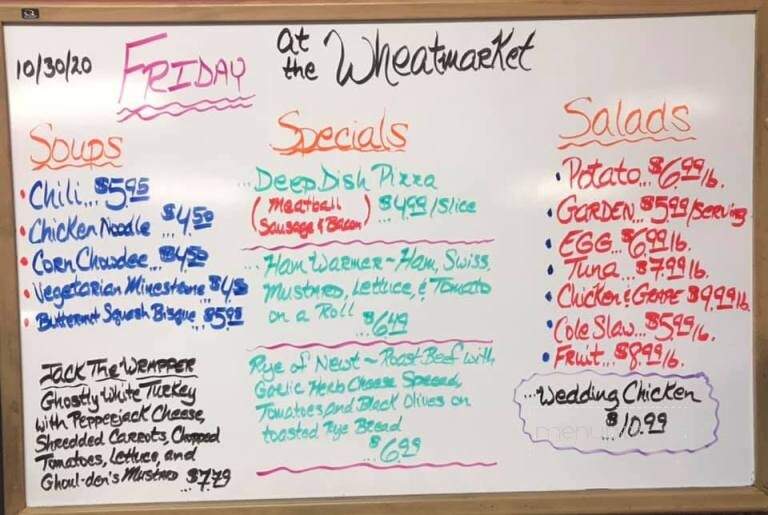 10/30/20
FRIDAY
at the Wheatmarket
Soups
• Chili... $5.95
• Chicken Noodle ... $4.50
• Corn Chowdee ... $4.50
• Vegetarian Minestrone $4.50
• Butternut Squash Bisque $5.95
JACK THE WRAPPER
Ghostly White Turkey
with Pepperjack Cheese,
Shredded Carrots, Chopped
Tomatoes, Lettuce, and
Ghoul-den's Mustard ... $7.79
Specials
...Deep Dish Pizza
(Meatball
Sausage & Bacon) ... $4.99/slice
...Ham Warmer ~ Ham, Swiss,
Mustard, Lettuce, & Tomato
on a Roll
... $6.49
Rye of Newt ~ Roast Beef with
Garlic Herb Cheese Spread,
Tomatoes and Black Olives on
toasted Rye Bread
... $6.99
Salads
• Potato... $6.99 lb.
• GARDEN... $5.99/serving
• EGG... $6.99 lb.
• Tuna... $7.99 lb.
• Chicken & GRAPE $9.99 lb.
Cole Slaw... $5.99 lb.
• Fruit... $8.99 lb.
...Wedding Chicken
... $10.99